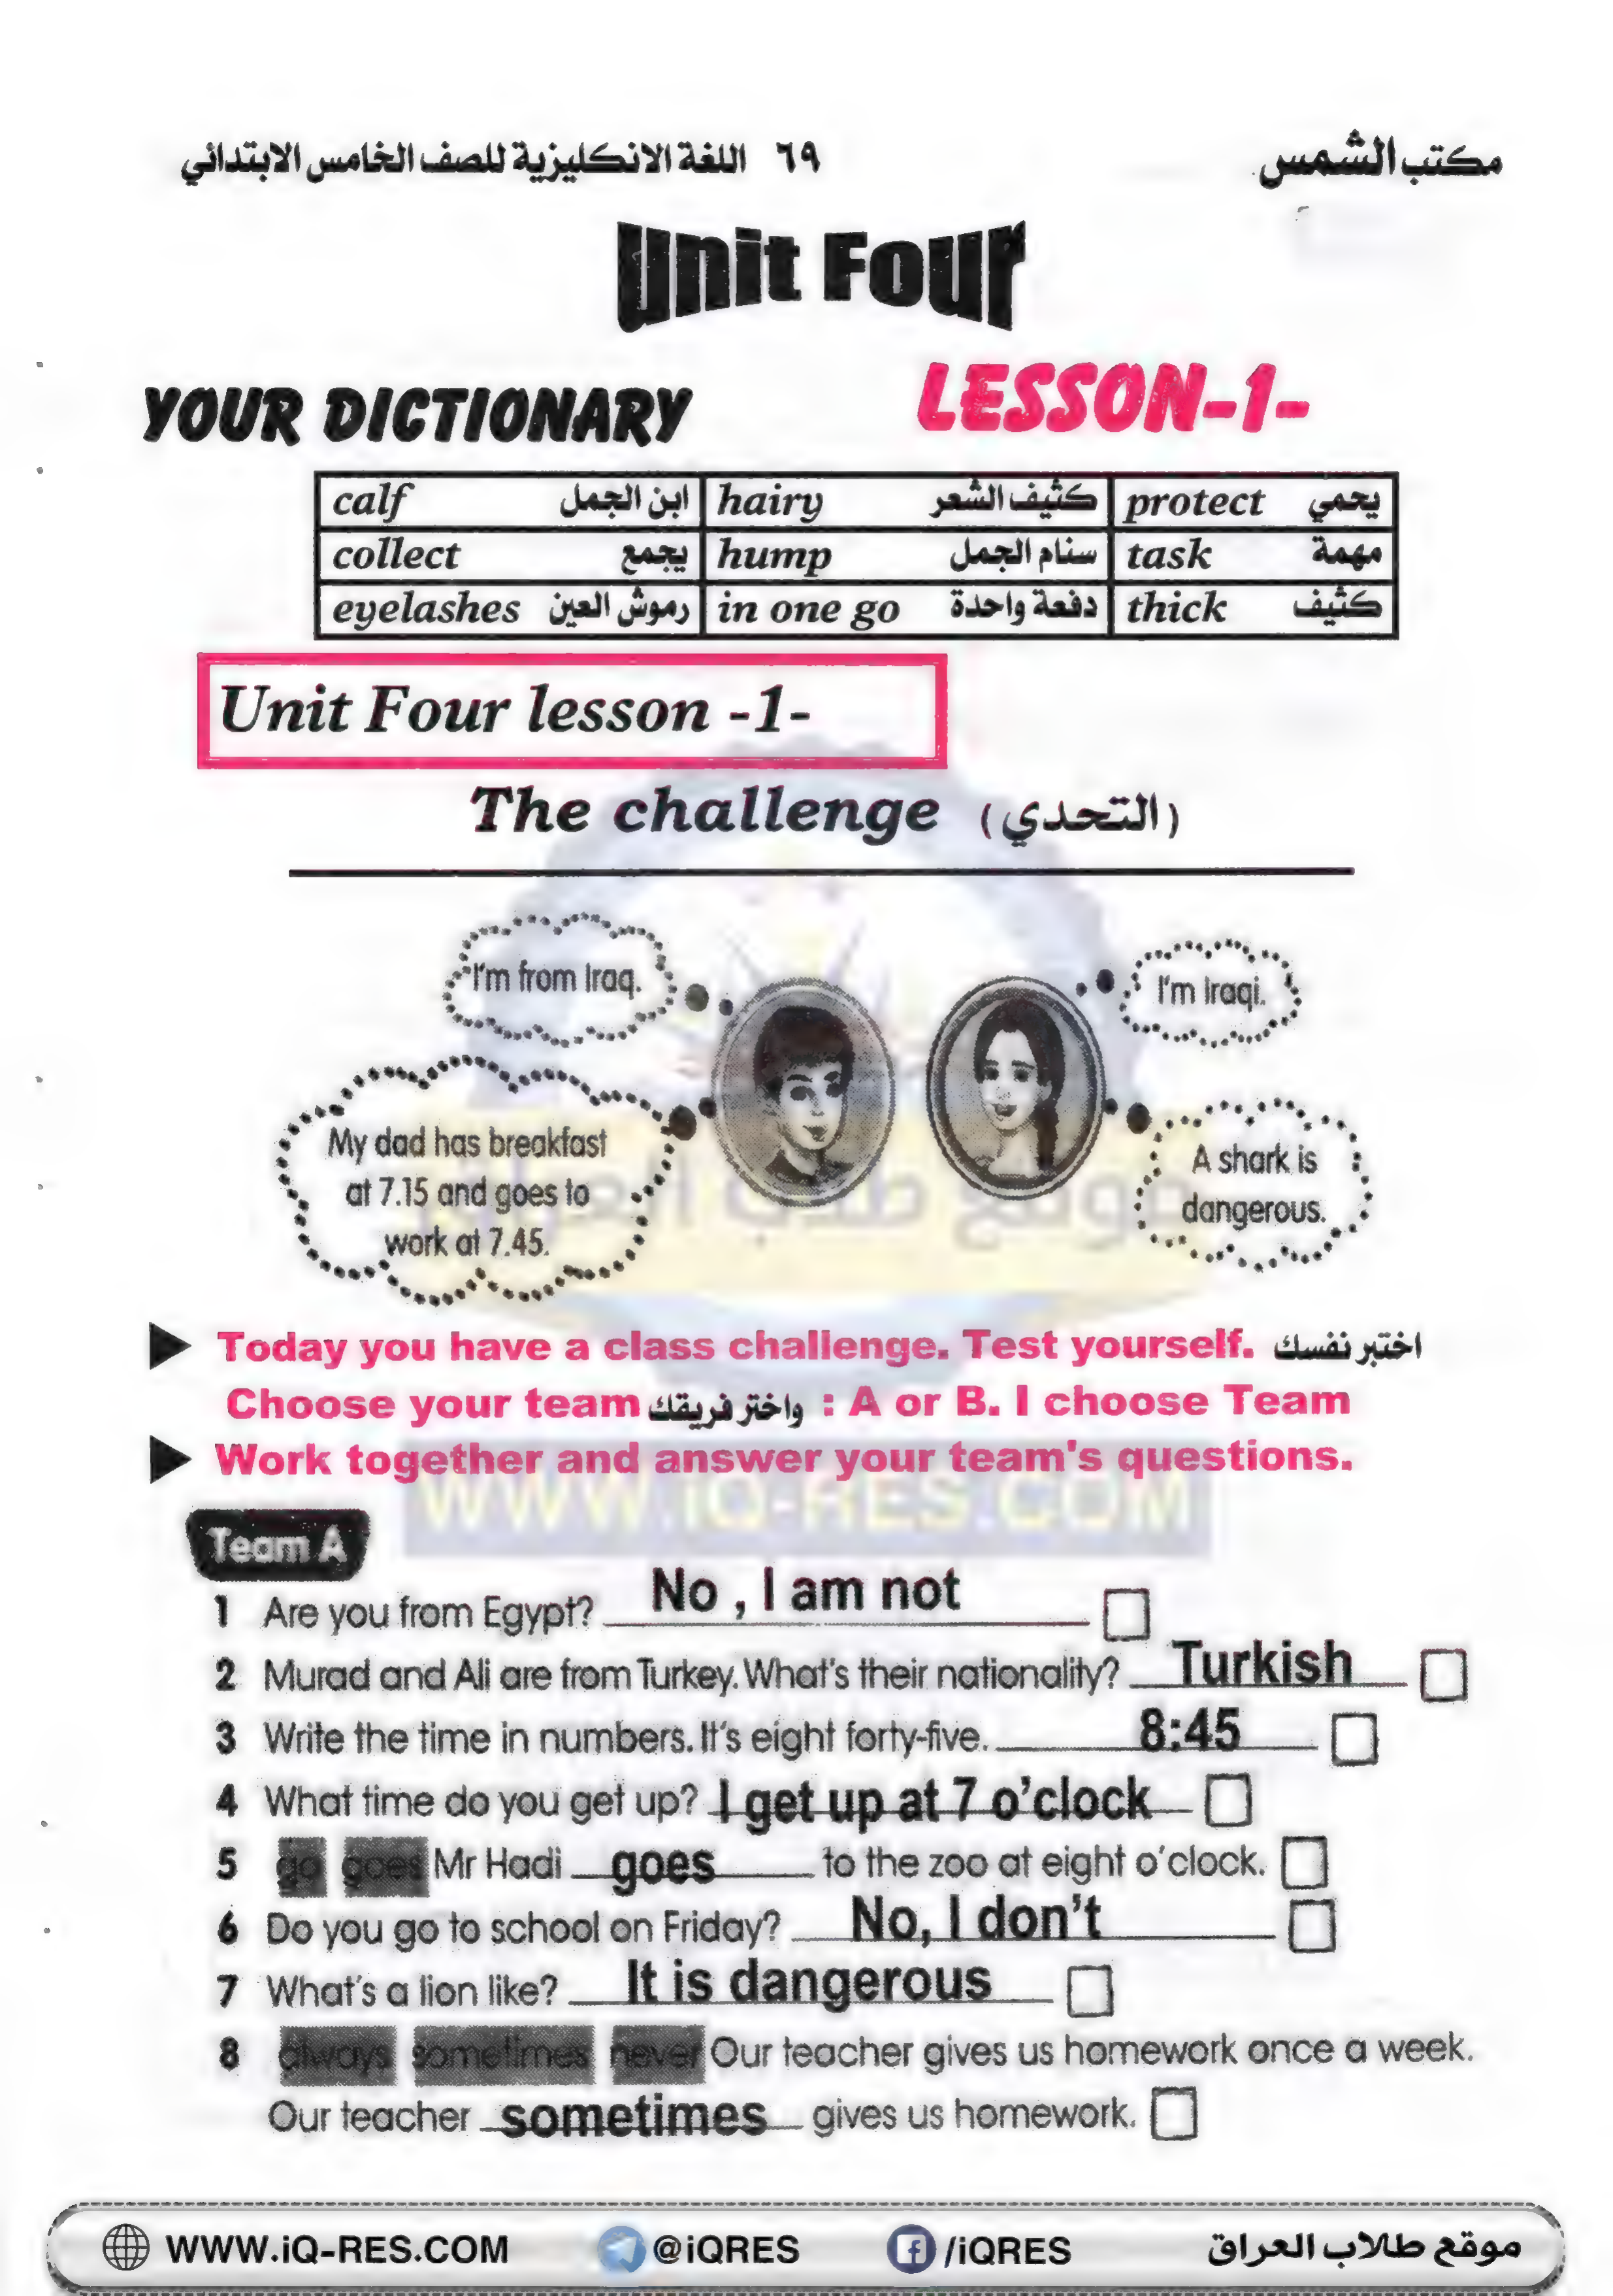 مكتب الشمس ٦٩ اللغة الانكليزية للصف الخامس الابتدائي
Unit Four
YOUR DICTIONARY LESSON-1-
calf ابن الجمل hairy كثيف الشعر protect يحمي
collect يجمع hump سنام الجمل task مهمة
eyelashes رموش العين in one go دفعة واحدة thick كثيف
Unit Four lesson -1-
The challenge (التحدي)
I'm from Iraq.
I'm Iraqi.
My dad has breakfast
at 7.15 and goes to
work at 7.45.
A shark is
dangerous.
موقع طلاب العراق
Today you have a class challenge. Test yourself. اختبر نفسك
Choose your team واختر فريقك : A or B. I choose Team
Work together and answer your team's questions.
WWW.iQ-RES.COM
Team A
1 Are you from Egypt? No , I am not
2 Murad and Ali are from Turkey. What's their nationality? Turkish
3 Write the time in numbers. It's eight forty-five. 8:45
4 What time do you get up? I get up at 7 o'clock
5 go goes Mr Hadi goes to the zoo at eight o'clock.
6 Do you go to school on Friday? No, I don't
7 What's a lion like? It is dangerous
8 always sometimes never Our teacher gives us homework once a week.
Our teacher sometimes gives us homework.
WWW.iQ-RES.COM @iQRES /iQRES موقع طلاب العراق